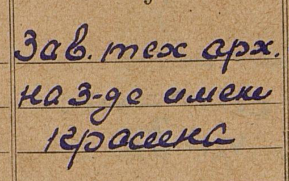 Зав. тех арх.
на з-де имени
Красина